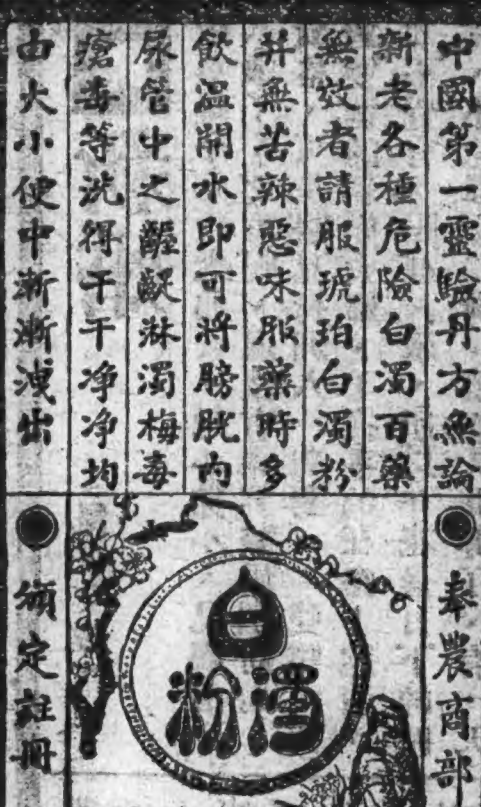 中國第一靈驗丹方無論
新老各種危險白濁百藥
無效者請服琥珀白濁粉
并無苦辣惡味服藥時多
飲溫開水即可將膀胱內
尿管中之齷齪淋濁梅毒
瘡毒等洗得干干净净均
由大小便中漸漸洩出
奉農商部
白濁粉
頒定註冊